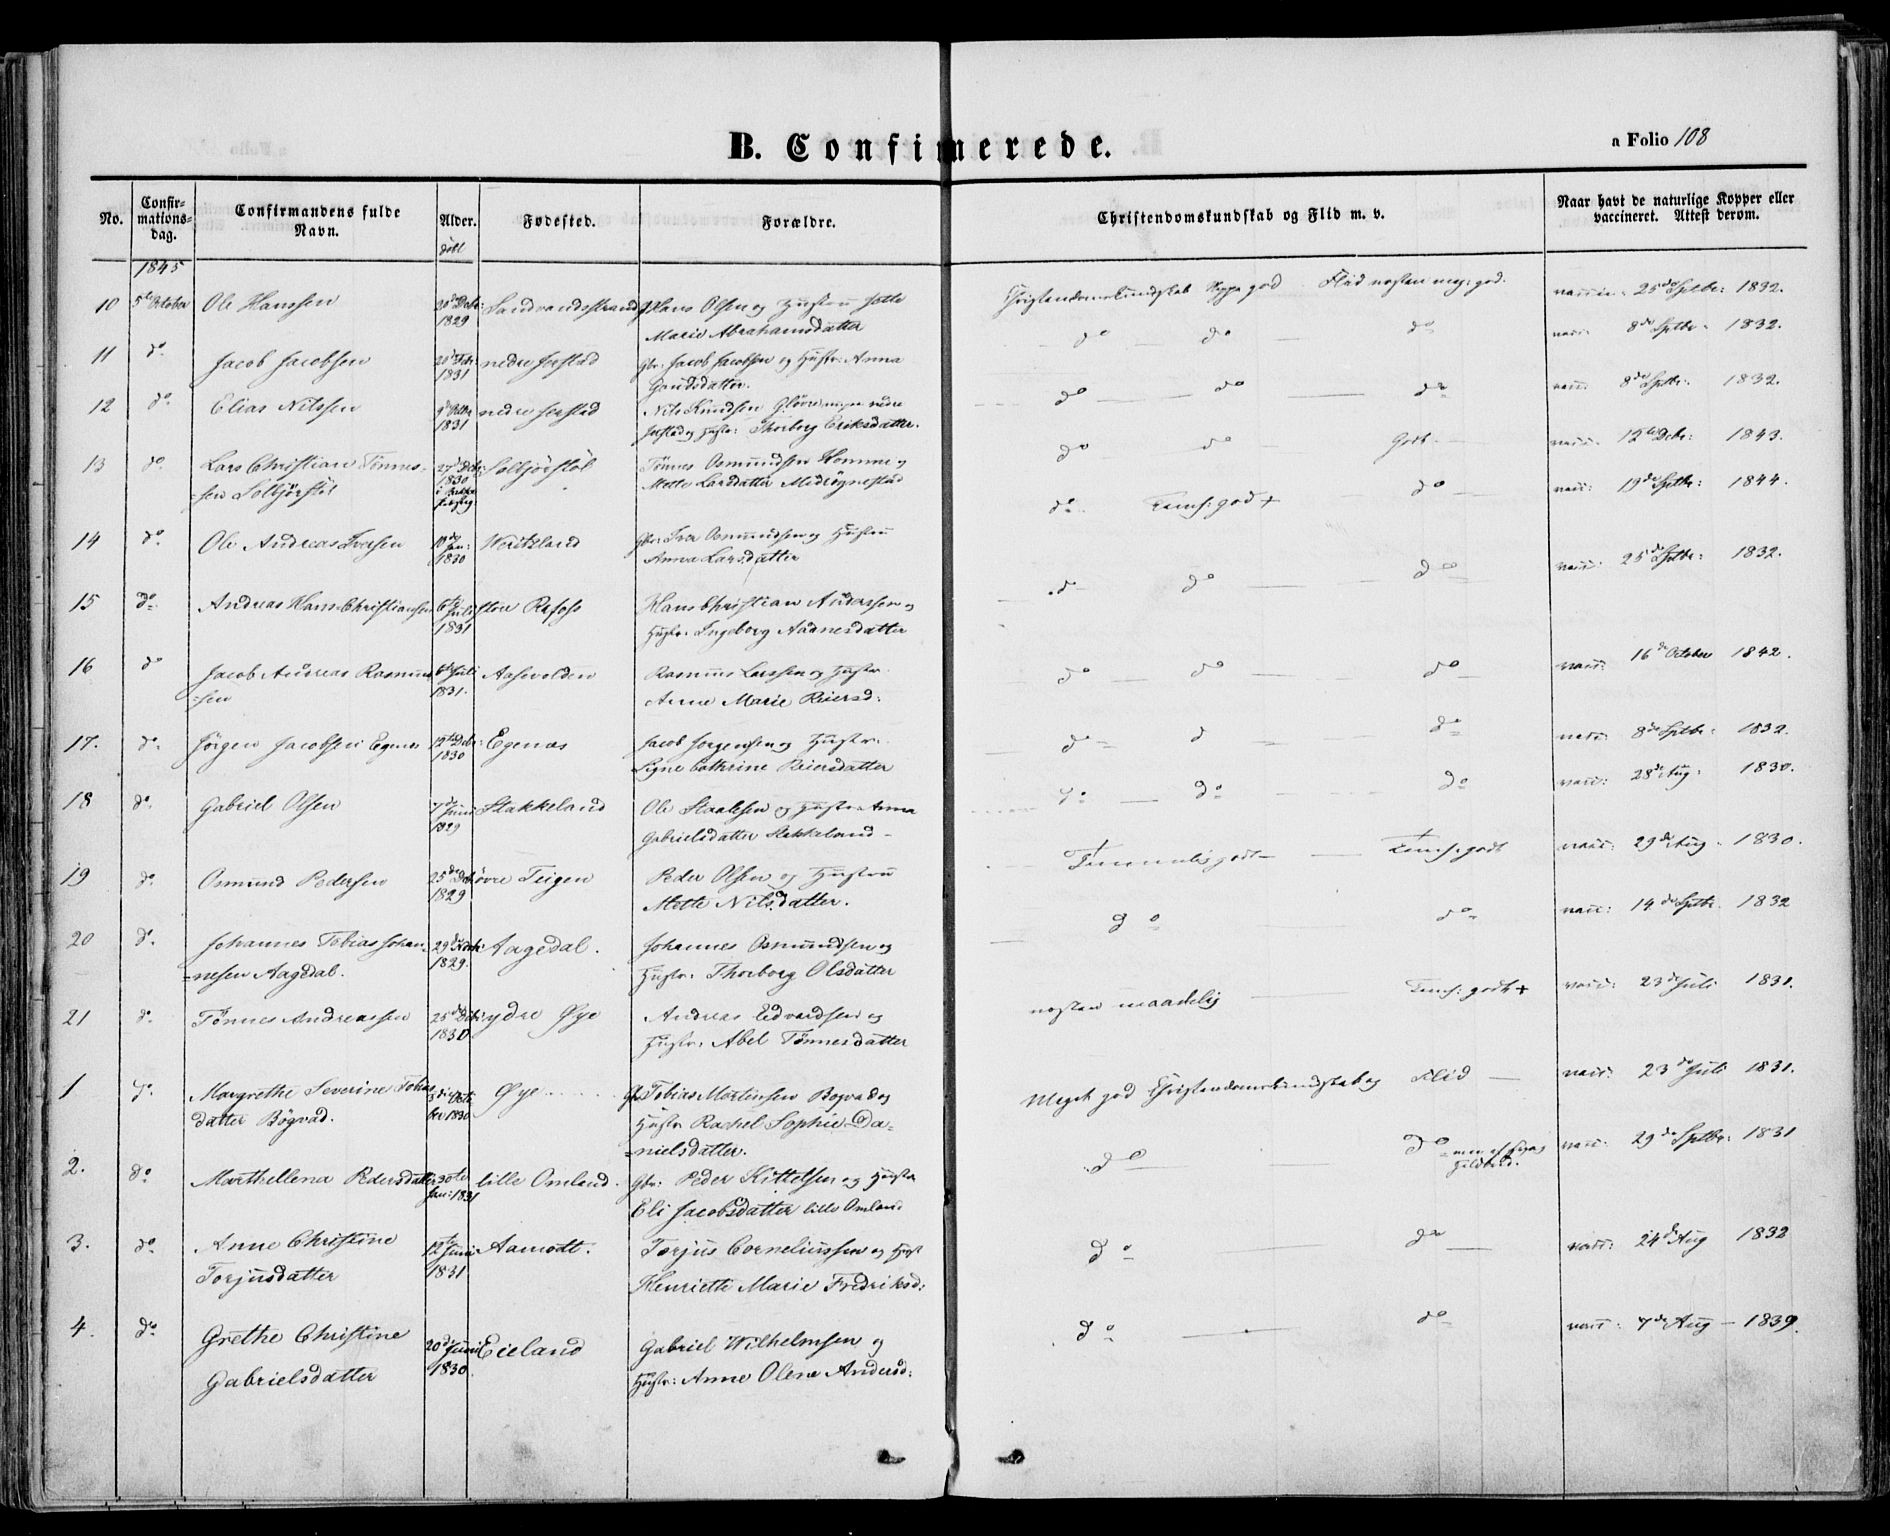 B. Confimerede.
a Folio 108
No.
Confir-
mations-
dag.
Confirmandens fulde
Navn.
Alder.
født
Fødested.
Forældre.
Christendomskundskab og Flid m. v.
Naar havt de naturlige Kopper eller
vaccineret. Attest derom.
1845
10 5te October Ole Hanssen 1829 Sandvandsstrand Hans Olsen og Hustru
Marie Abrahamsdatter
Christendomskundskab god Flid næsten meg: god. 25de Septbr: 1832.
11 do. Jacob Jacobsen 1831 nedre Jerstad Gbr: Jacob Jacobsen og Hustr: Anna
do do do 8de Septbr: 1832.
12 do. Elias Nilssen 1831 nedre Jerstad Nils Knudsen nedre
Jerstad og Hustr: Thorborg Eriksdatter.
do do do 8de Septbr: 1832.
13 do. Lars Christian Tønnes-
sen Solbjørstøl 1830 Solbjørstøl Tønnes Osmundsen Homme og
Mette Larsdatter Midbøgnestad
do do Godt. 12te Decbr: 1843.
14 do. Ole Andreas Iversen 1830 Gbr: Iver Osmundsen og Hustru
Anna Larsdatter
do. Temh: god + do 19de Septbr: 1844.
15 do. Andreas Hans Christiansen 6te Juli 1831 store Refoss Hans Christian Anderssen og
Hustr: Ingeborg Aadnesdatter
do do do 25de Septbr: 1832.
16 do Jacob Andreas Rasmus-
sen 6te Juli 1831. Aasevolden Rasmus Larssen og Hustr:
Anne Marie Reiersd:
do do do 16de October 1842.
17. do. Jørgen Jacobsen Egenæs 12te Decbr: 1830 Egenæs Jacob Jørgensen og Hustr:
Signe Cathrine Reiersdatter
do d do 8de Septbr: 1832.
18 do. Gabriel Olsen 7de Juni 1829 Stakkeland Ole Staalesen og Hustru Anna
Gabrielsdatter Stakkeland
do do do 28de Aug: 1830.
19 do. Osmund Pedersen 25de 1829 øvre Teigen Peder Olsen og Hustru
Mette Nilsdatter.
Temmelig godt Temh: godt 29de Aug. 1830.
20 do. Johannes Tobias Johan-
nesen Aagedal. 29de 1829. Aagedal. Johannes Osmundsen og
Hustr: Thorborg Olsdatter
do do 14de Septbr. 1832
21 do. Tønnes Andreassen 25de 1830. ydre Øye Andreas Edvardsen og
Hustr: Abel Tønnesdatter
næsten maadelig Temh: godt + 23de Juli 1831.
1 do. Margrethe Severine Tobias-
datter Bøgvad. 1830 Øye Tobias Mortensen Bøgvad og
Hustr Rachel Sophie Da-
nielsdatter.
Meget god Christendomskundskab og Flid 23de Juli 1831.
2. do Marthellena Pedersdatter 30te Jan: 1831 lille Omland. Gbr: Peder Kittelsen og Hustru
Eli Jacobsdatter lille Omland
do do 29de Septbr: 1831
3. do. Anne Christine
Torjusdatter 12te Juni 1831 Aamodt. Torjus Corneliussen og Hust
Henriette Marie Fredriksd:
do do 24de Aug 1832
4. do. Grethe Christine
Gabrielsdatter 20de Juni 1830. Eieland Gabriel Wilhelmsen og
Hustr: Anne Olene Andersd:
do do 7de Aug 1839.